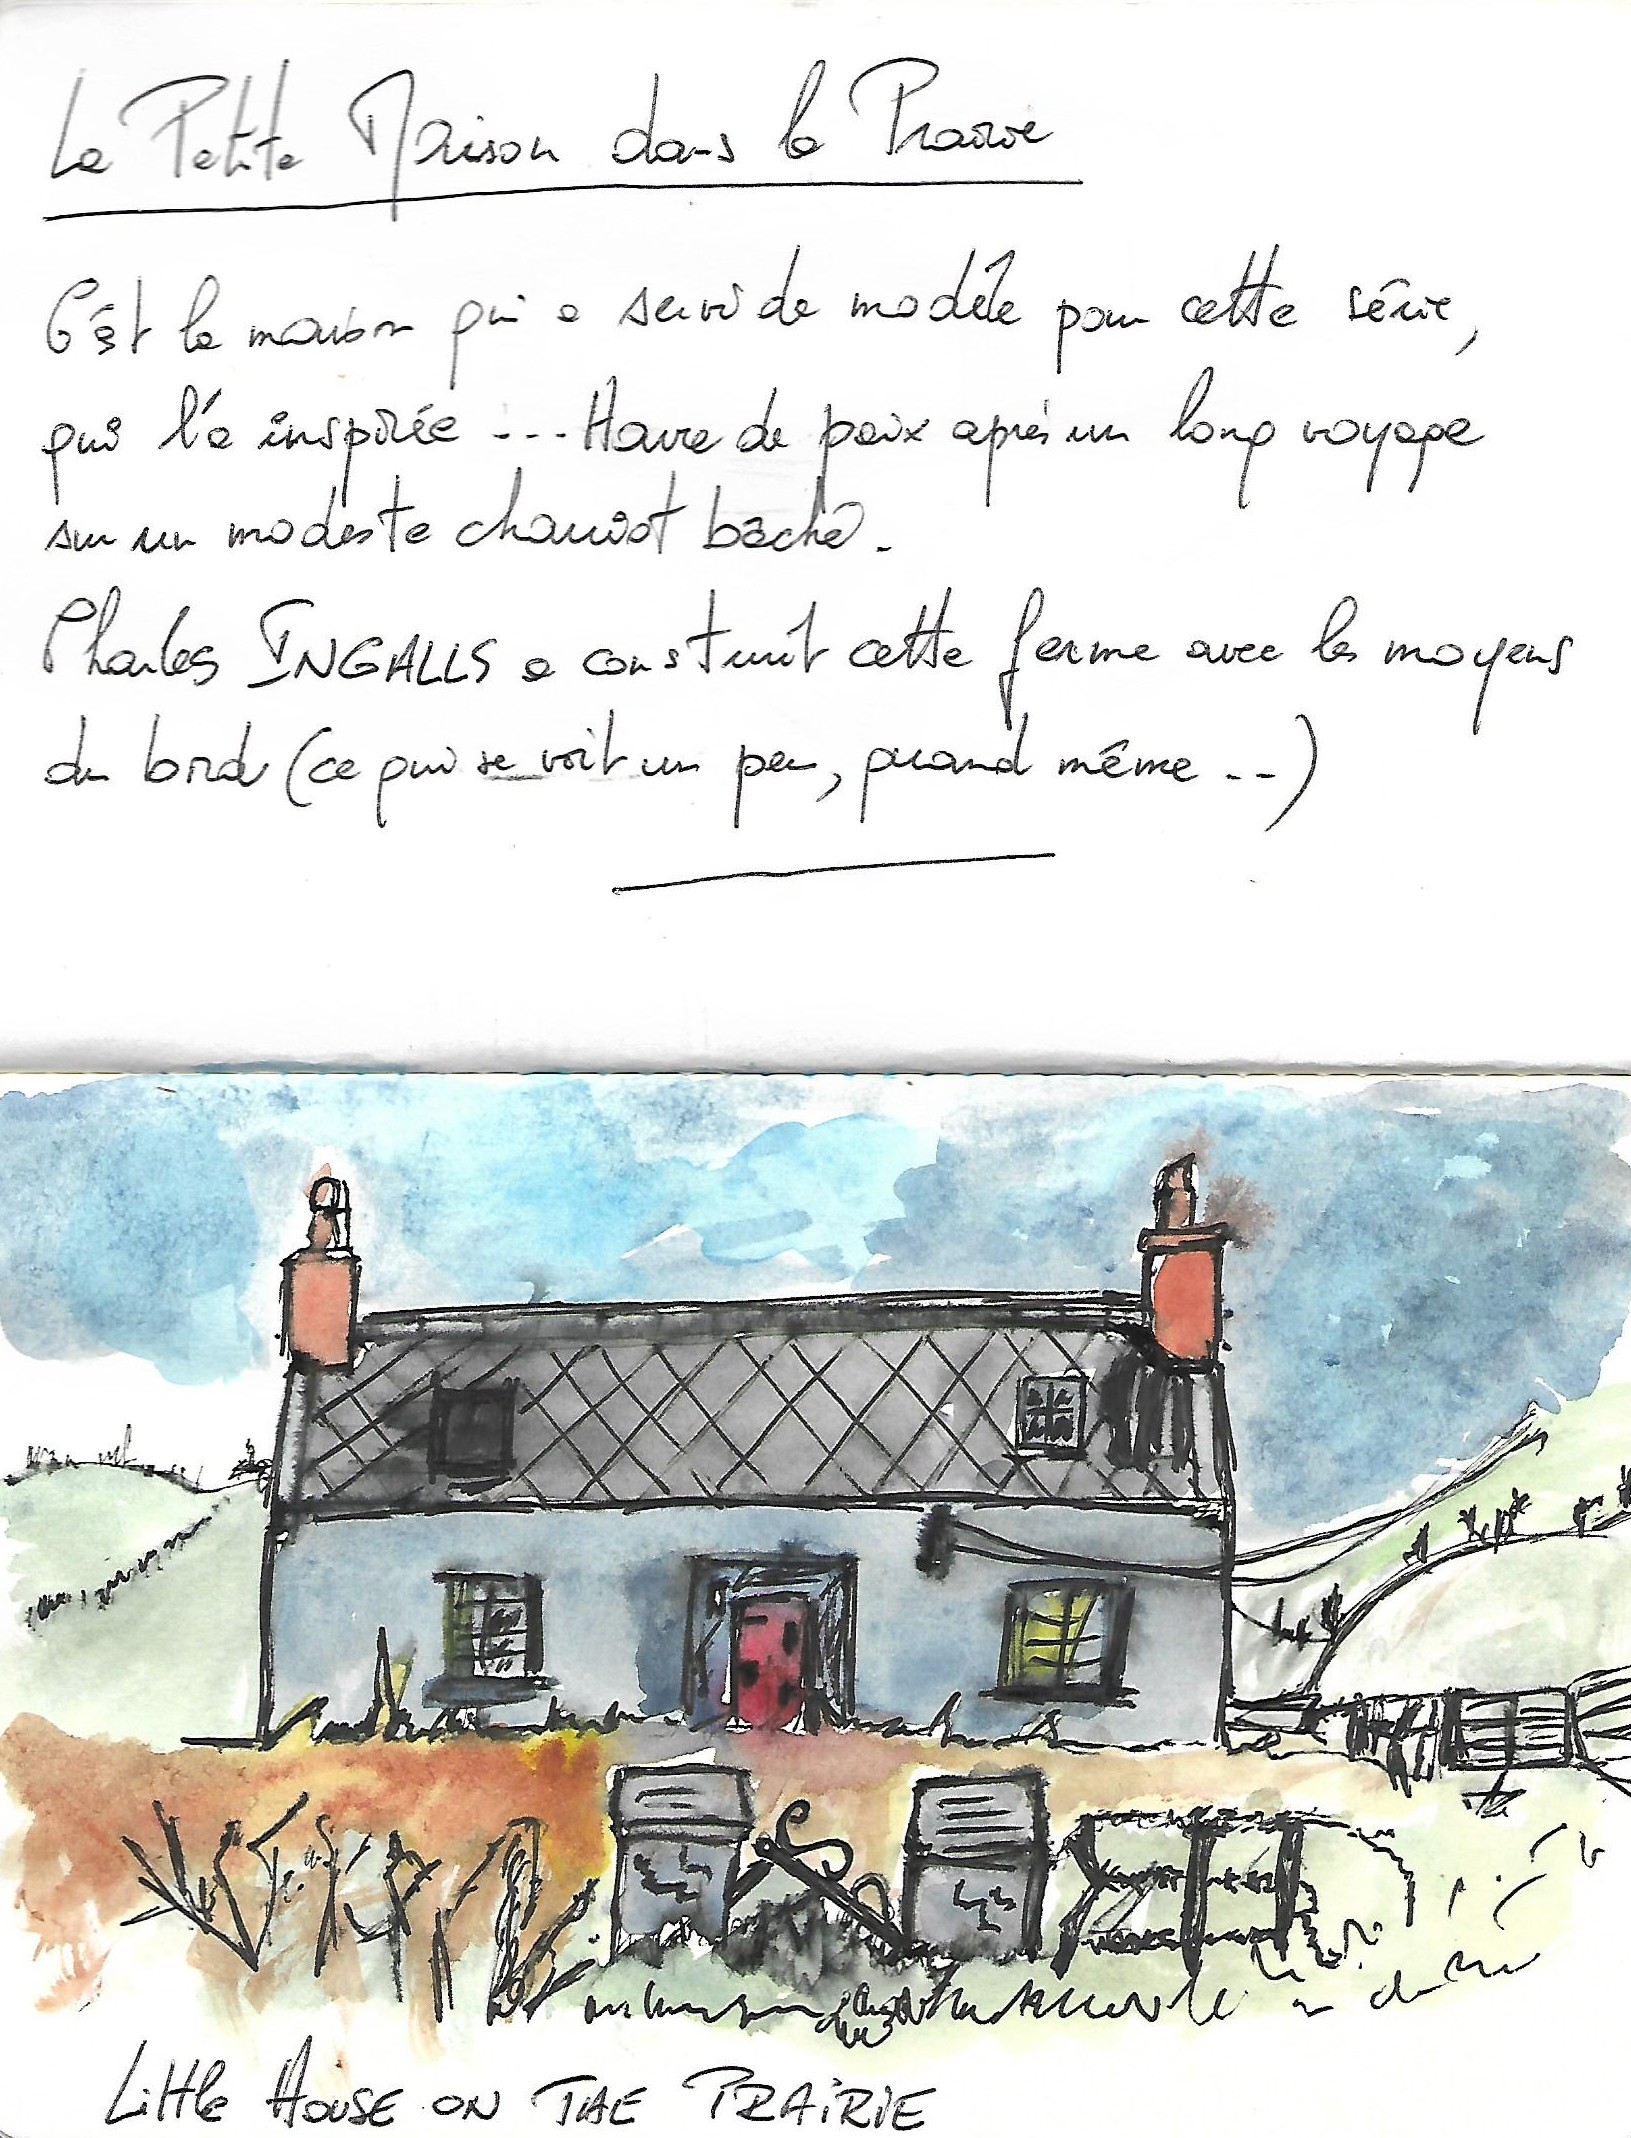 La Petite Maison dans la Prairie
C'est la maison qui a servi de modèle pour cette série,
qui l'a inspirée ... Havre de paix après un long voyage
sur un modeste chariot bâché.
Charles INGALLS a construit cette ferme avec les moyens
du bord (ce qui se voit un peu, quand même ...)
Little House on THE PRAiRiE